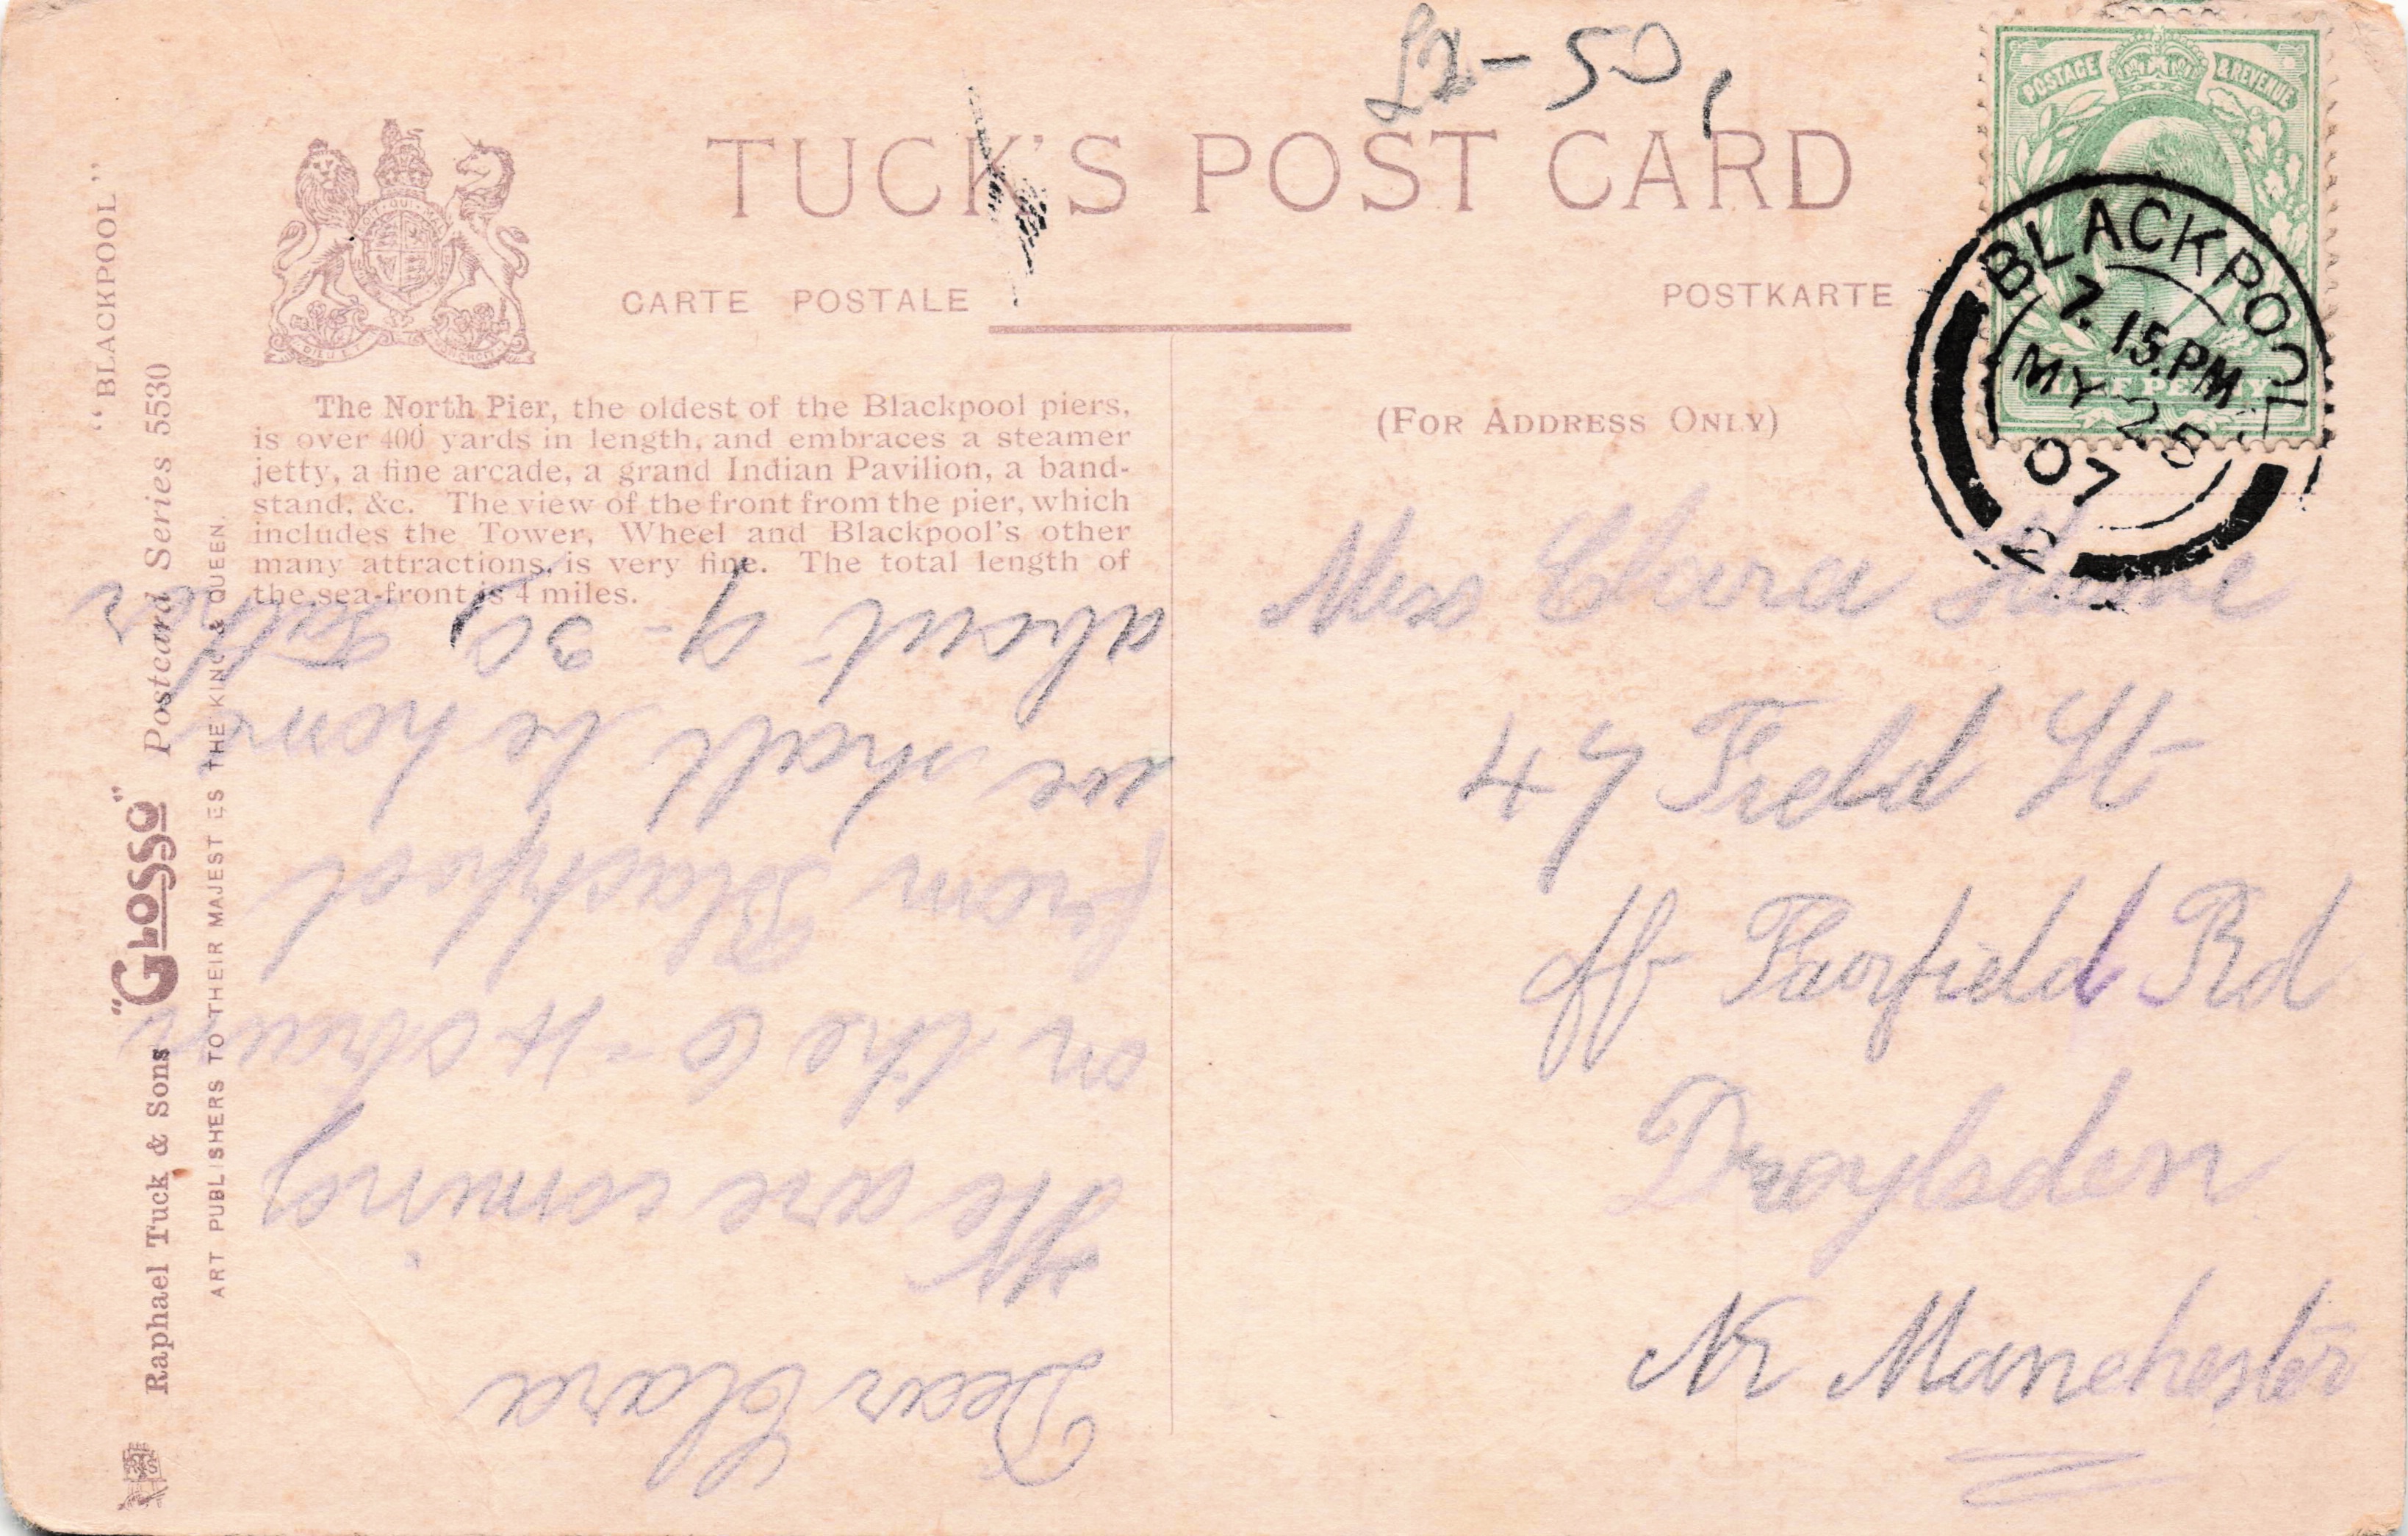 £2-50
TUCK'S POST CARD
CARTE POSTALE
POSTKARTE
POSTAGE & REVENUE
HALF PENNY
BLACKPOOL
7.15.PM
MY 25
07
2
The North Pier, the oldest of the Blackpool piers,
is over 400 yards in length, and embraces a steamer
jetty, a fine arcade, a grand Indian Pavilion, a band-
stand, &c. The view of the front from the pier, which
includes the Tower, Wheel and Blackpool's other
many attractions, is very fine. The total length of
the sea-front is 4 miles.
(FOR ADDRESS ONLY)
Miss Clara
47 Field St
off Fairfield Rd
Droylsden
Nr Manchester
Dear Clara
We are coming
on the 6-40 train
from Blackpool
we shall be home
about 9-30, Father
"BLACKPOOL"
Raphael Tuck & Sons "GLOSSO" Postcard Series 5530
ART PUBLISHERS TO THEIR MAJESTIES THE KING & QUEEN.